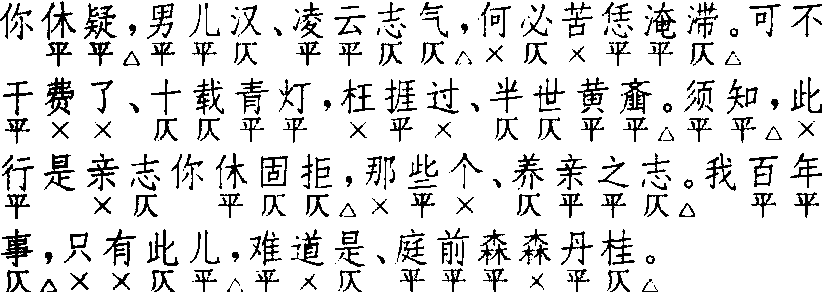 你休疑,男儿汉、凌云志气,何必苦恁淹滞。可不
平平△平平仄 平平仄仄△×仄×平平仄△
干费了、十载青灯,枉捱过、半世黄齑。须知,此
平×× 仄仄平平 ×平× 仄仄平平△平平△×
行是亲志你休固拒,那些个、养亲之志。我百年
平 ×仄 平仄仄△×平× 仄平平仄△ 平平
事,只有此儿,难道是、庭前森森丹桂。
仄△××仄平△平×仄 平平平×平仄△